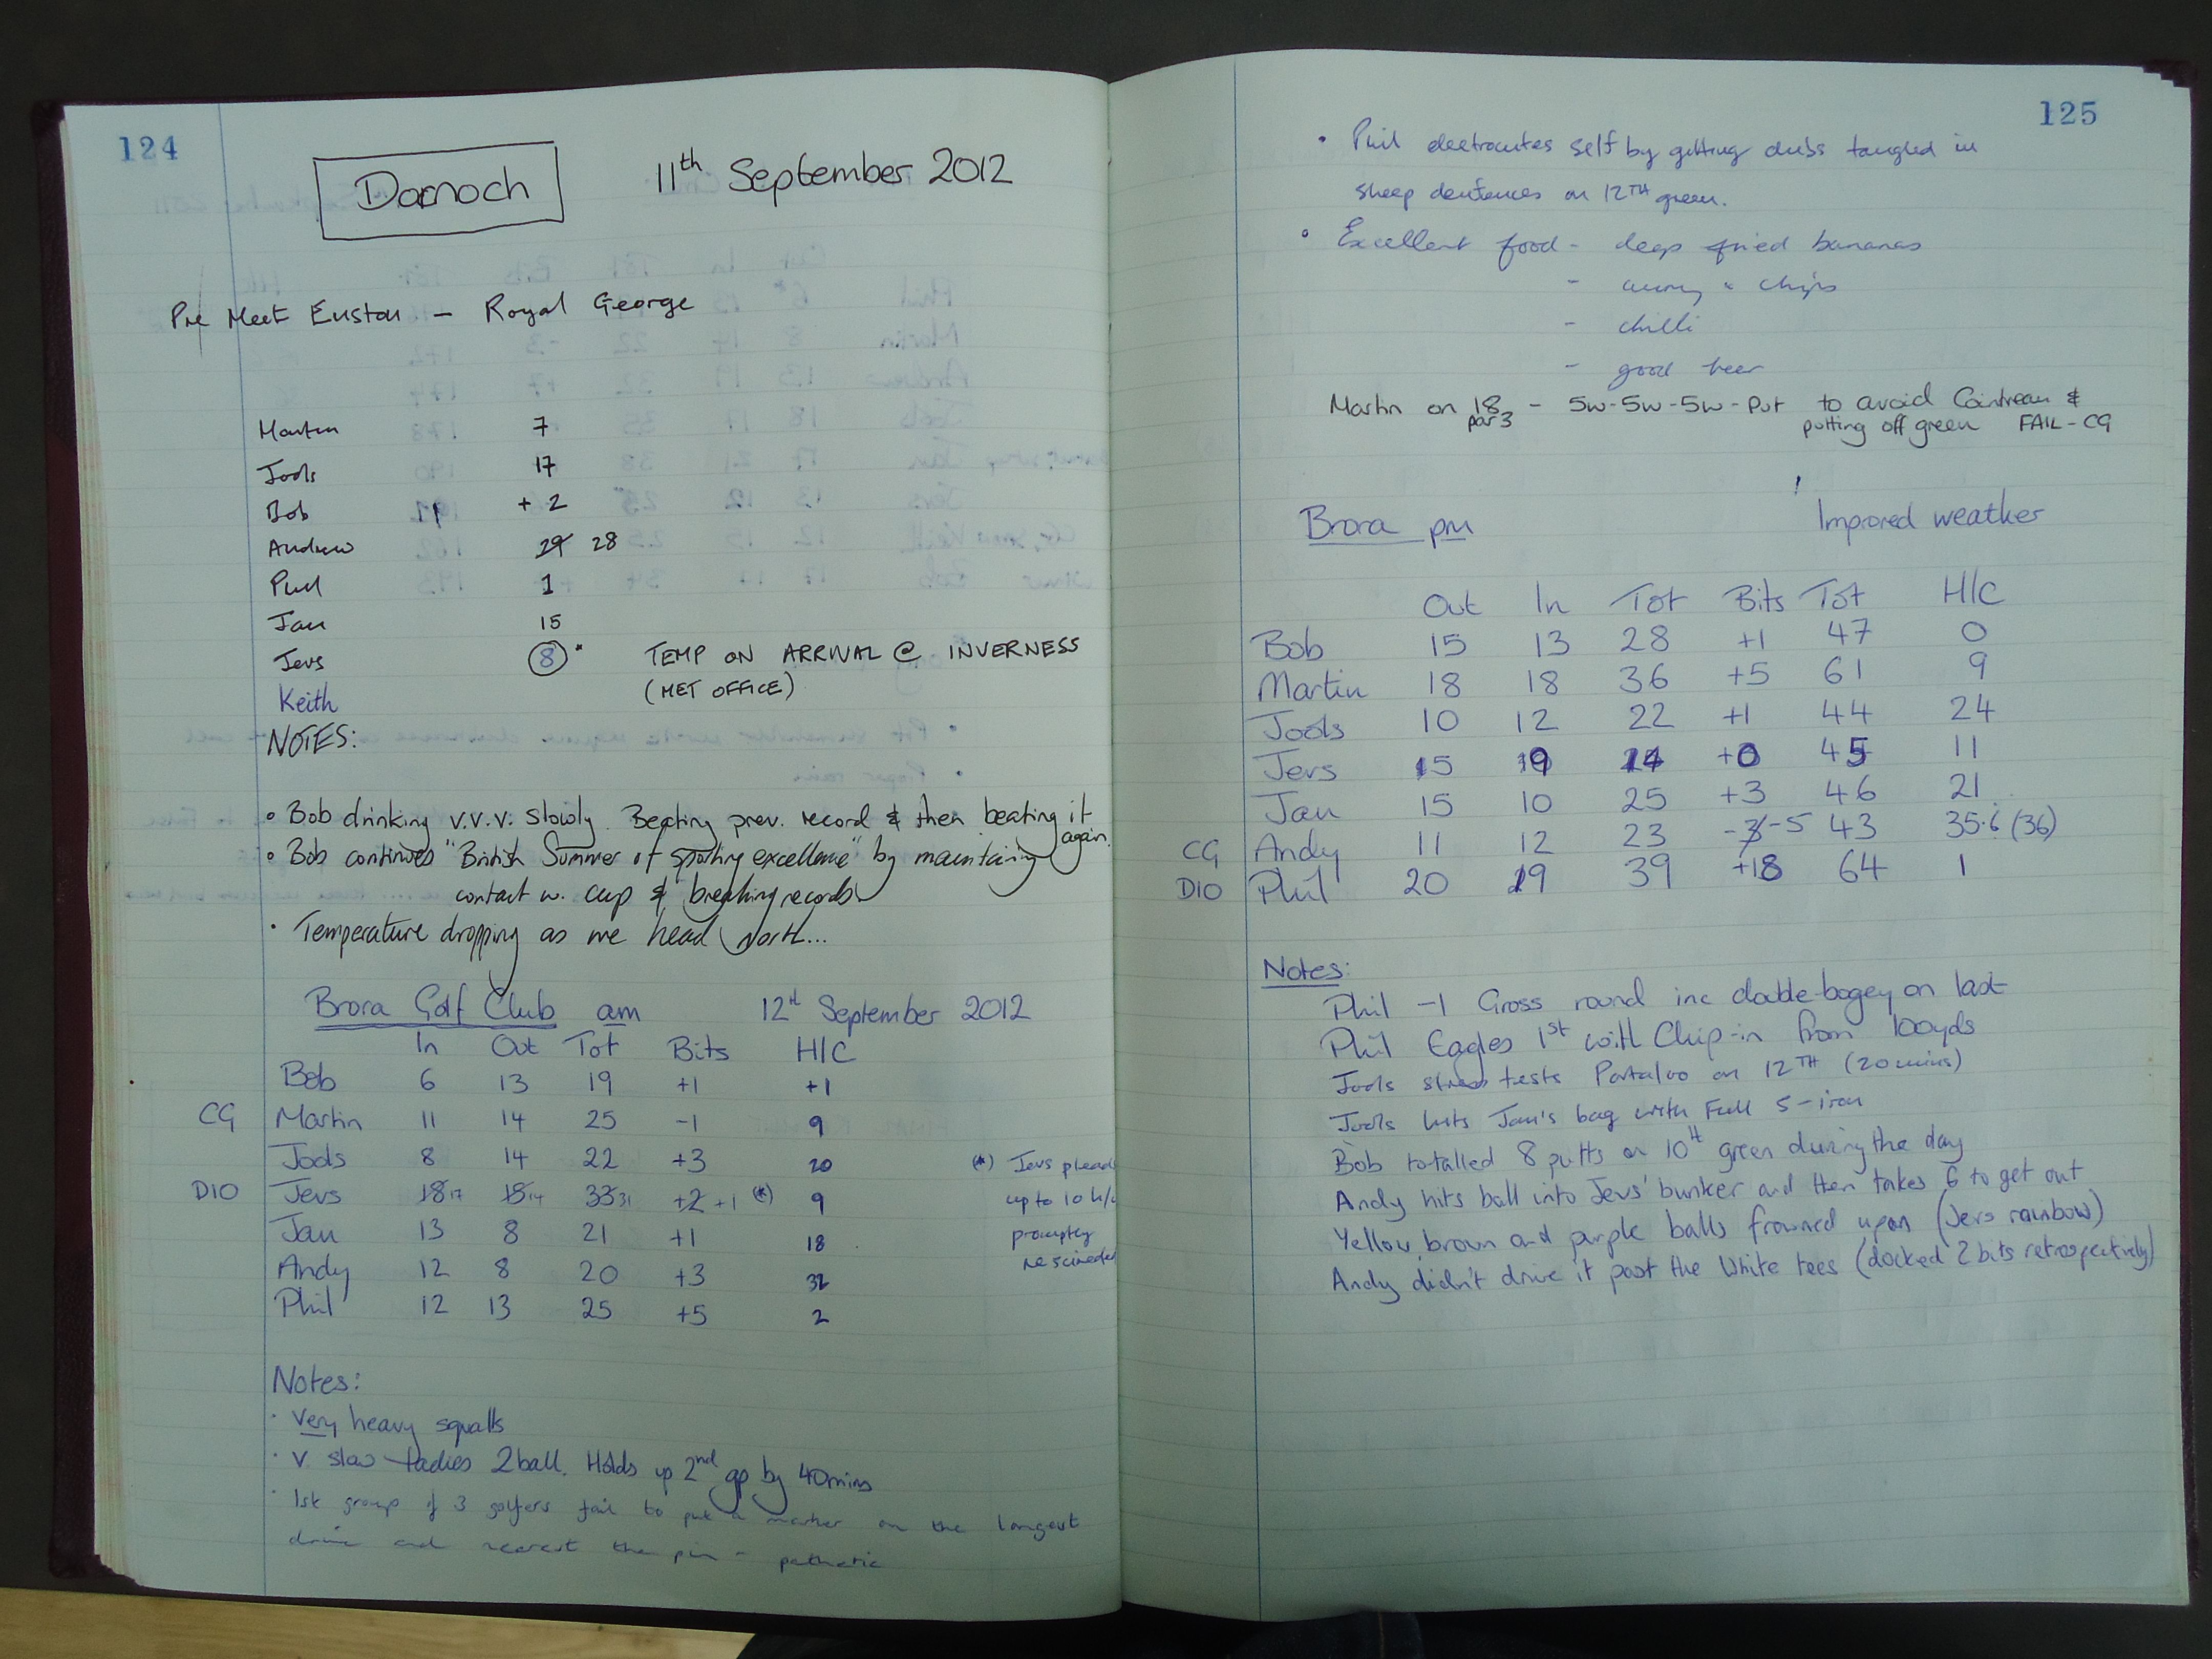 124
Dornoch 11th September 2012
Pre Meet Euston - Royal George
Martin 7
Jools 17
Bob 11 + 2
Andrew 29 28
Phil 1
Jan 15
Jevs 8 * TEMP ON ARRIVAL @ INVERNESS
(MET OFFICE)
Keith
NOTES:
• Bob drinking v.v.v. slowly. Beating prev. record & then beating it again.
• Bob continues "British Summer of sporting excellence" by maintaining
contact w. cup & breaking records
• Temperature dropping as we head North...
Brora Golf Club am 12th September 2012
In Out Tot Bits H/C
Bob 6 13 19 +1 +1
CG Martin 11 14 25 -1 9
Jools 8 14 22 +3 20
DIO Jevs 18 17 15 14 33 31 +2 +1 (*) 9
Jan 13 8 21 +1 18
Andy 12 8 20 +3 32
Phil 12 13 25 +5 2
(*) Jevs plead
up to 10 h/c
promptly
rescinded
Notes:
• Very heavy squalls
• V slow Ladies 2 ball. Holds up 2nd gp by 40mins
• 1st group of 3 golfers fail to put a marker on the longest
drive and nearest the pin - pathetic
125
• Phil electrocutes self by getting clubs tangled in
sheep on 12TH green.
• Excellent food - deep fried bananas
- curry & chips
- chilli
- good beer
Martin on 18 par 3 - 5w-5w-5w-put to avoid Cointreau &
putting off green FAIL-CG
Brora pm Improved weather
Out In Tot Bits Tot H/C
Bob 15 13 28 +1 47 0
Martin 18 18 36 +5 61 9
Jools 10 12 22 +1 44 24
Jevs 15 9 24 +0 45 11
Jan 15 10 25 +3 46 21
CG Andy 11 12 23 -3 -5 43 35.6 (36)
DIO Phil 20 19 39 +18 64 1
Notes:
Phil -1 Gross round inc double-bogey on last
Phil Eagles 1st with Chip-in from 100yds
Jools stress tests Portaloo on 12TH (20 mins)
Jools hits Jan's bag with Full 5-iron
Bob totalled 8 putts on 10th green during the day
Andy hits ball into Jevs' bunker and then takes 6 to get out
Yellow, brown and purple balls frowned upon (Jevs rainbow)
Andy didn't drive it past the White tees (docked 2 bits retrospectively)